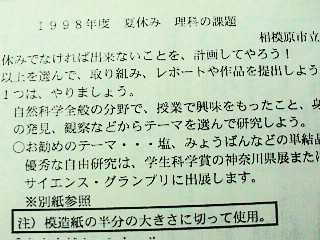 1998年度 夏休み 理科の課題
相模原市立
休みでなければ出来ないことを、計画してやろう!
以上を選んで、取り組み、レポートや作品を提出しよう
1つは、やりましょう。
自然科学全般の分野で、授業で興味をもったこと、身
の発見、観察などからテーマを選んで研究しよう。
○お勧めのテーマ・・・塩、みょうばんなどの単結晶
優秀な自由研究は、学生科学賞の神奈川県展または
サイエンス・グランプリに出展します。
※別紙参照
注)模造紙の半分の大きさに切って使用。